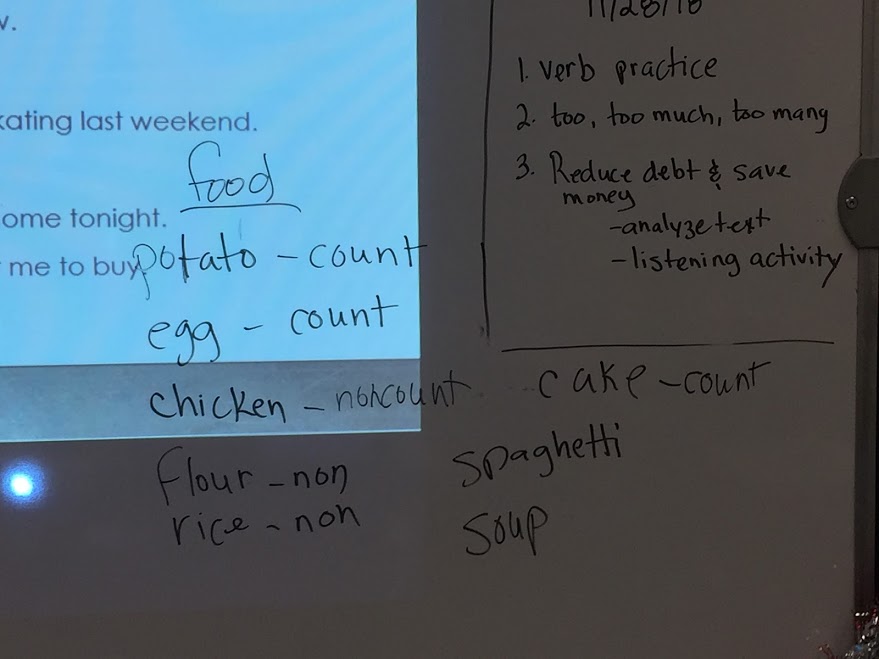 v.
kating last weekend.
ome tonight.
me to buy
food
potato - count
egg - count
chicken - noncount
flour - non
rice - non
11/28/18
1. verb practice
2. too, too much, too many
3. Reduce debt & save
money
-analyze text
-listening activity
cake - count
spaghetti
soup